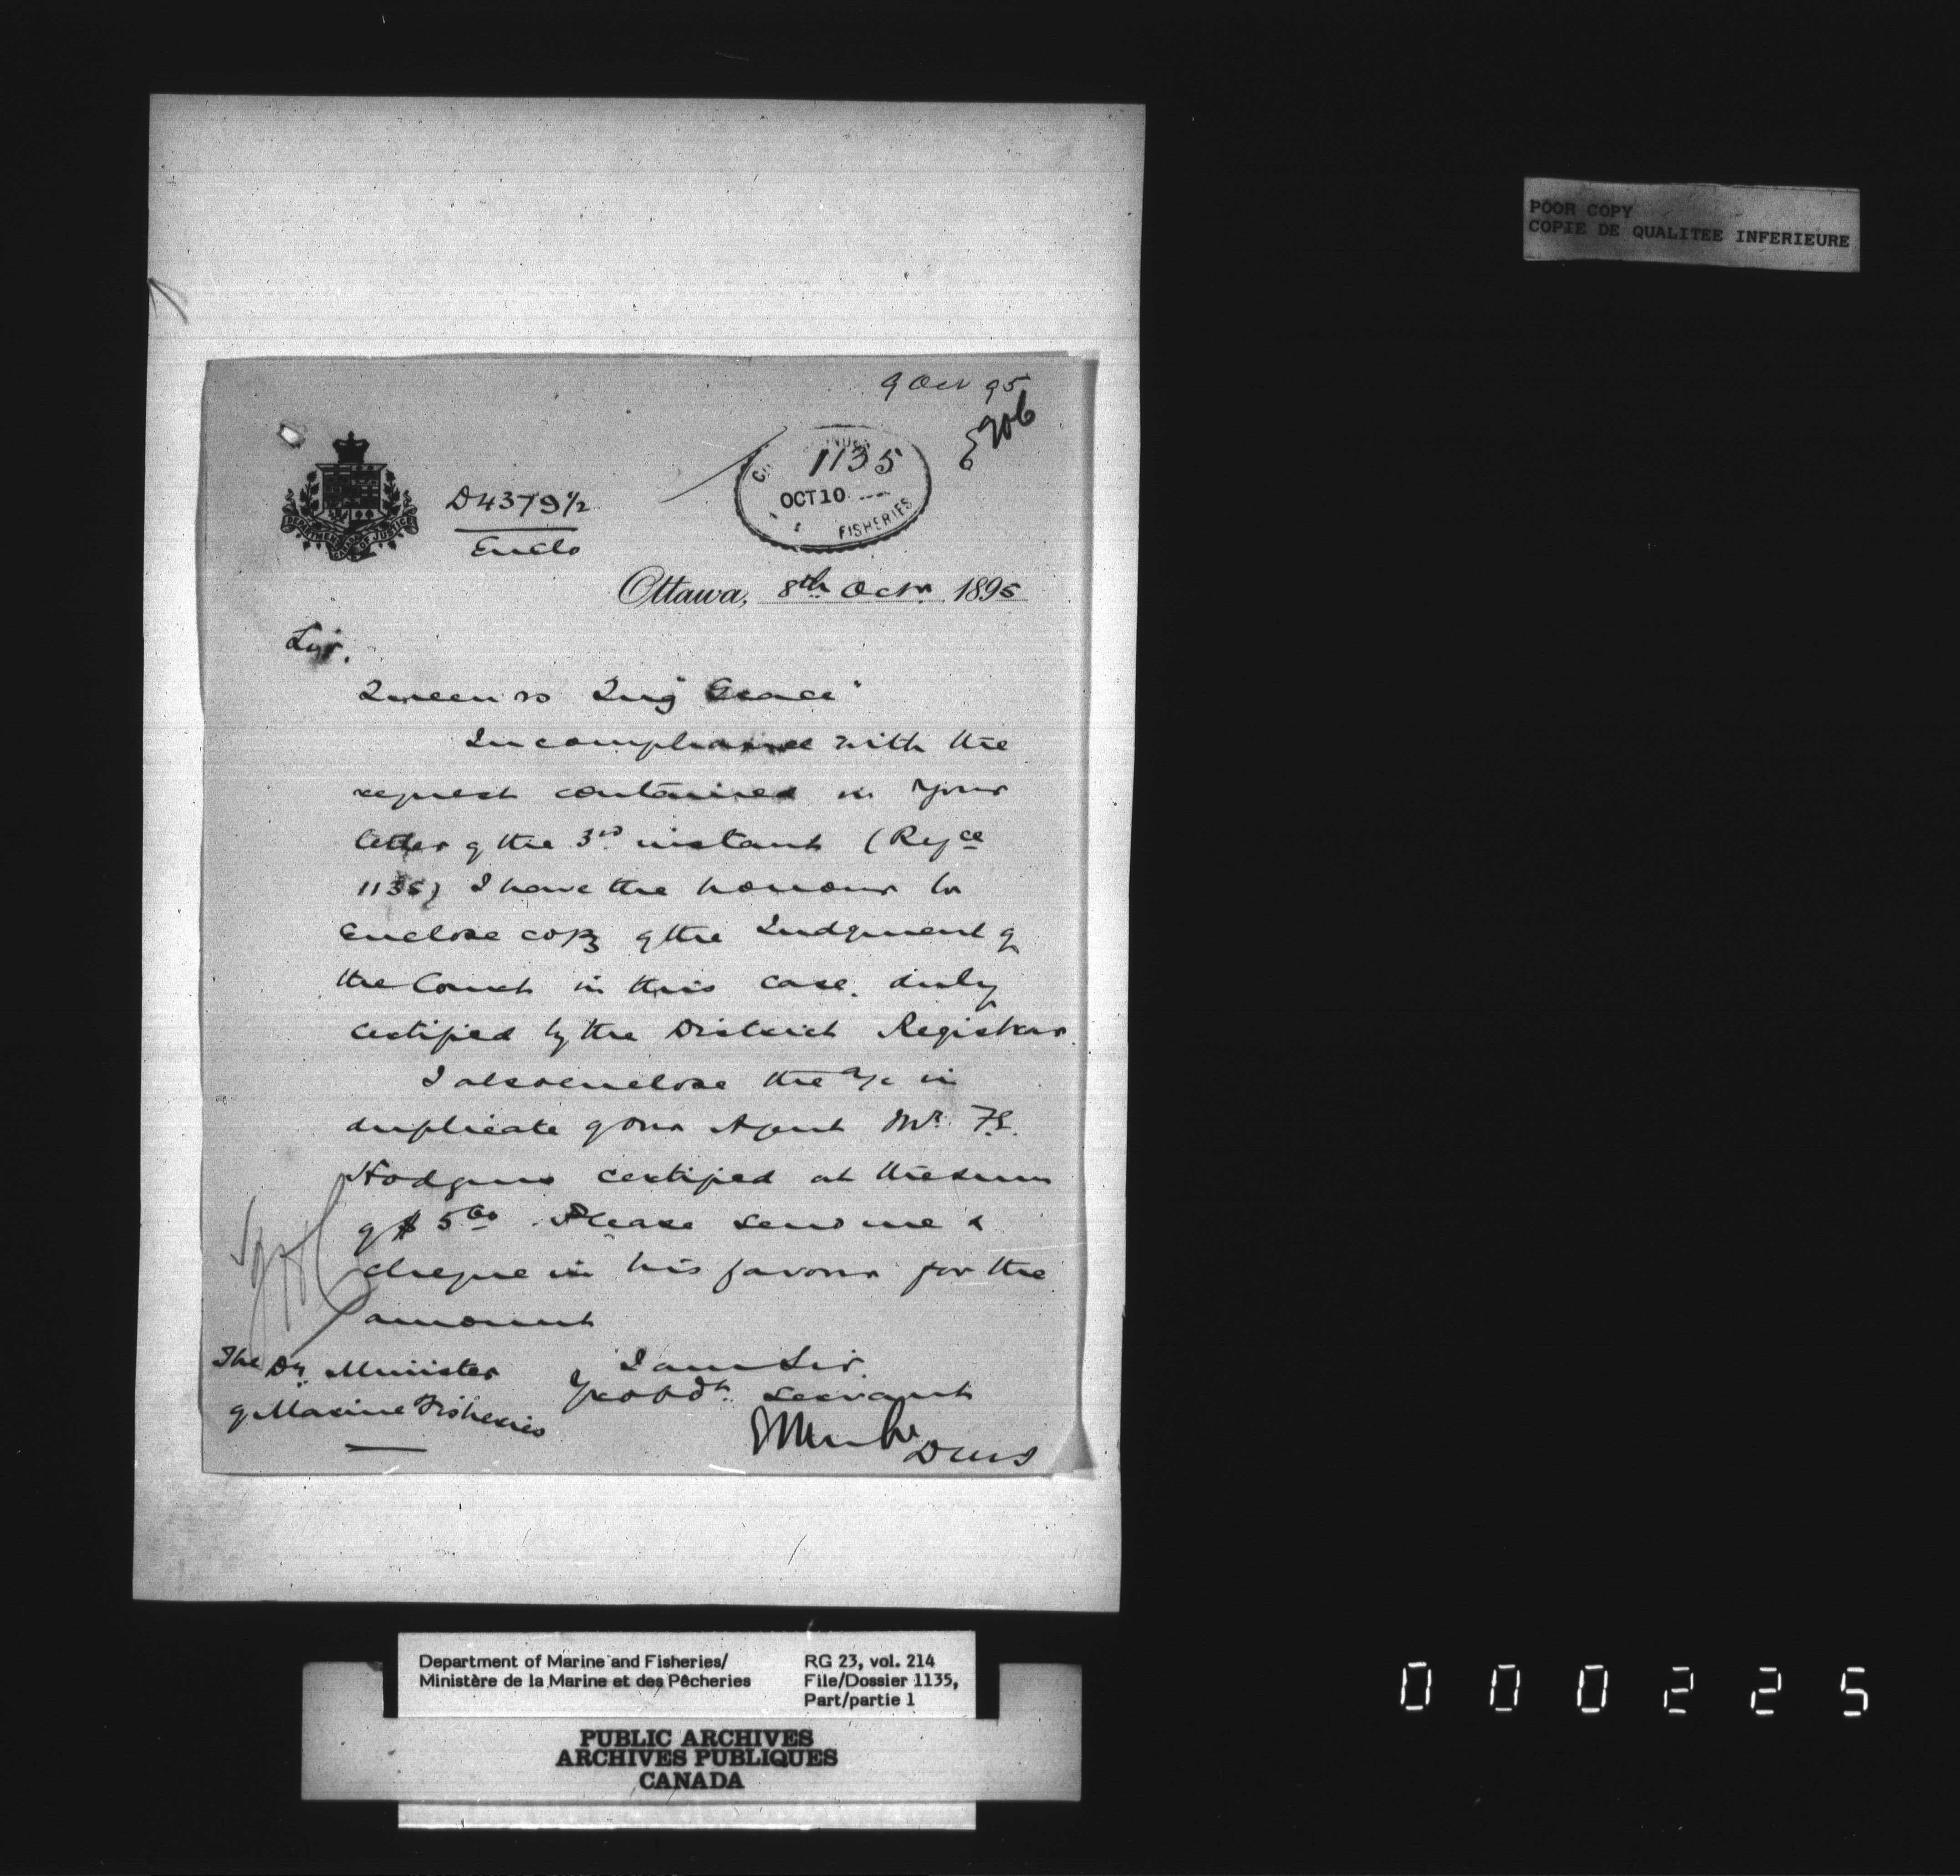 POOR COPY
COPIE DE QUALITEE INFERIEURE
9 Oct 95
1135
OCT 10
FISHERIES
DEPARTMENT OF JUSTICE
D4379½
Enclo
Ottawa, 8th Octr 1895
Sir,
Queen vs Tug "Grace"
In compliance with the
request contained in your
letter of the 3rd instant (Refce
1135) I have the honour to
enclose copy of the Judgment of
the Court in this case, duly
certified by the District Registrar.
I also enclose the a/c in
duplicate of our Agent Mr. F.E.
Hodgins certified at the sum
of $5 60. Please send me a
cheque in his favour for the
amount
I am Sir,
Yr obdt. servant
The Dy. Minister
of Marine Fisheries
Department of Marine and Fisheries/
Ministère de la Marine et des Pêcheries
RG 23, vol. 214
File/Dossier 1135,
Part/partie 1
PUBLIC ARCHIVES
ARCHIVES PUBLIQUES
CANADA
000225